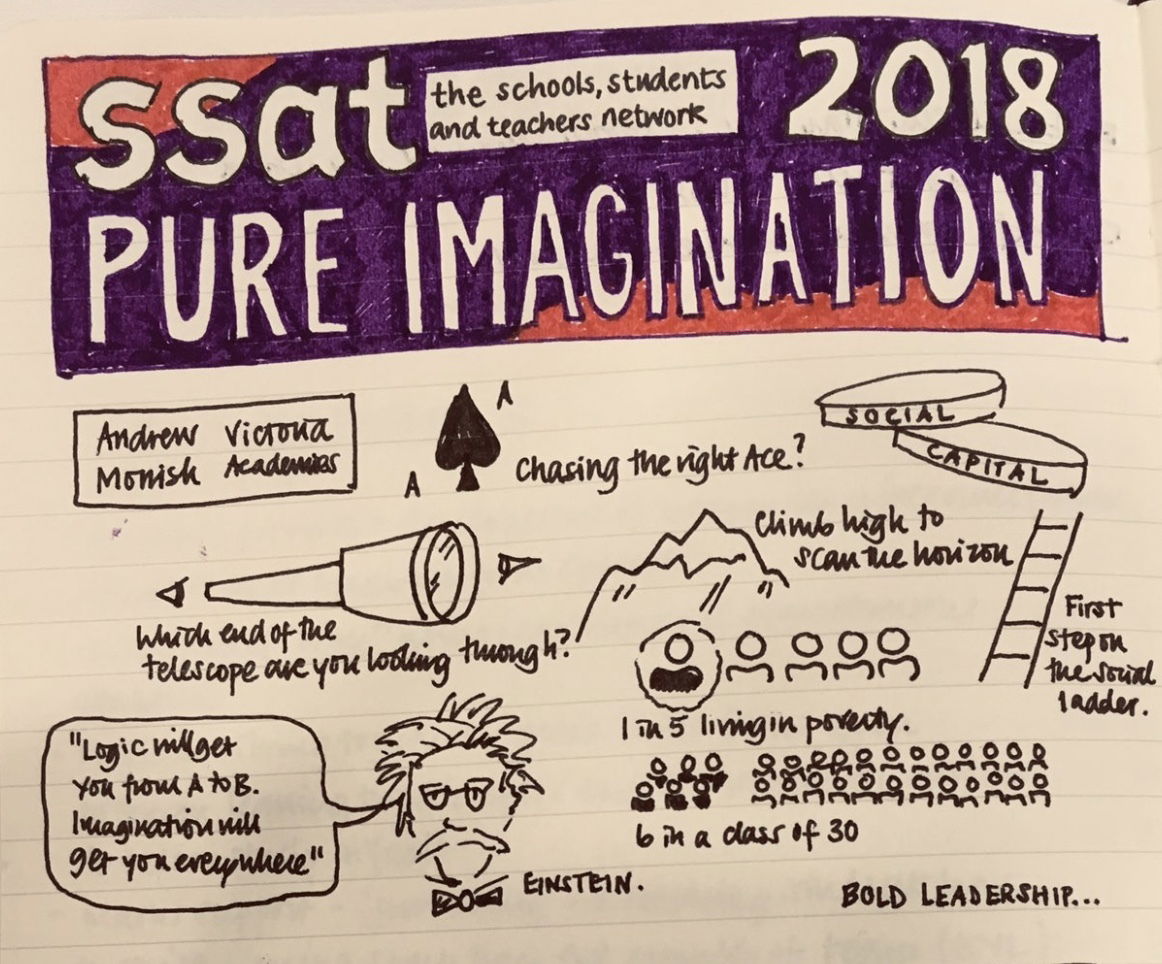 ssat
the schools, students
and teachers network
2018
PURE IMAGINATION
Andrew Victoria
Monish Academies
A
A
Chasing the right Ace?
SOCIAL
CAPITAL
Climb high to
scan the horizon
Which end of the
telescope are you looking through?
First
step on
the social
ladder.
1 in 5 living in poverty.
6 in a class of 30
"Logic will get
you from A to B.
Imagination will
get you everywhere"
EINSTEIN.
BOLD LEADERSHIP...